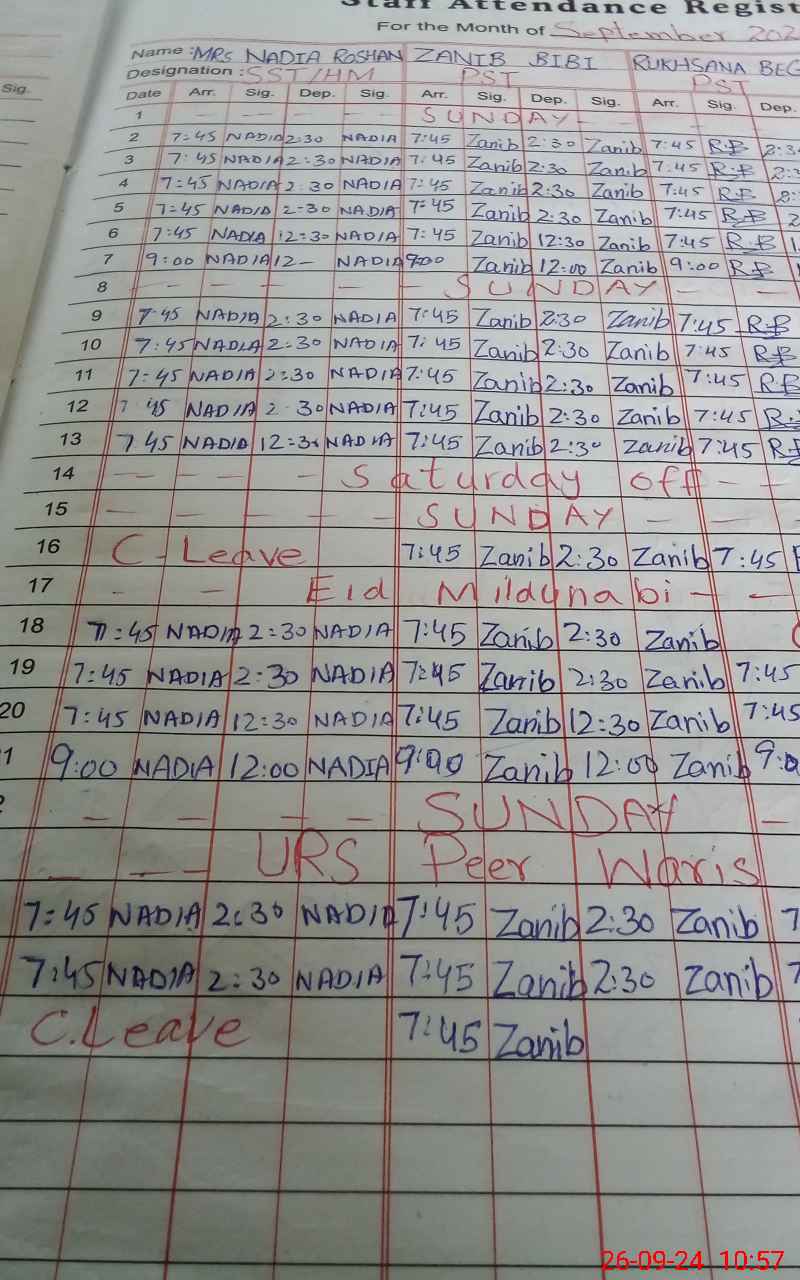 Staff Attendance Regist
For the Month of September 202
Name : MRS NADIA ROSHAN ZANIB BIBI RUKHSANA BEG
Designation : SST/HM PST PST
Sig.
Date Arr. Sig. Dep. Sig. Arr. Sig. Dep. Sig. Arr. Sig. Dep.
1 - - - - - SUNDAY - -
2 7:45 NADIA 2:30 NADIA 7:45 Zanib 2:30 Zanib 7:45 R.B 2:3
3 7:45 NADIA 2:30 NADIA 7:45 Zanib 2:30 Zanib 7:45 R.B 2:
4 7:45 NADIA 2:30 NADIA 7:45 Zanib 2:30 Zanib 7:45 R.B 2:
5 7:45 NADIA 2:30 NADIA 7:45 Zanib 2:30 Zanib 7:45 R.B 2
6 7:45 NADIA 12:30 NADIA 7:45 Zanib 12:30 Zanib 7:45 R.B 1
7 9:00 NADIA 12- NADIA 9:00 Zanib 12:00 Zanib 9:00 R.B
8 - - - - - SUNDAY - -
9 7:45 NADIA 2:30 NADIA 7:45 Zanib 2:30 Zanib 7:45 R.B
10 7:45 NADIA 2:30 NADIA 7:45 Zanib 2:30 Zanib 7:45 R.B
11 7:45 NADIA 2:30 NADIA 7:45 Zanib 2:30 Zanib 7:45 R.B
12 7 45 NADIA 2:30 NADIA 7:45 Zanib 2:30 Zanib 7:45 R.B
13 7 45 NADIA 12:30 NADIA 7:45 Zanib 2:30 Zanib 7:45 R.B
14 - - - - Saturday off - -
15 - - - - - SUNDAY - -
16 C-Leave 7:45 Zanib 2:30 Zanib 7:45
17 - - Eid Miladunabi - -
18 7:45 NADIA 2:30 NADIA 7:45 Zanib 2:30 Zanib
19 7:45 NADIA 2:30 NADIA 7:45 Zanib 2:30 Zanib 7:45
20 7:45 NADIA 12:30 NADIA 7:45 Zanib 12:30 Zanib 7:45
1 9:00 NADIA 12:00 NADIA 9:00 Zanib 12:00 Zanib 9:0
- - - - SUNDAY -
- - - URS Peer Waris
7:45 NADIA 2:30 NADIA 7:45 Zanib 2:30 Zanib 7
7:45 NADIA 2:30 NADIA 7:45 Zanib 2:30 Zanib 7
C.Leave 7:45 Zanib
26-09-24 10:57